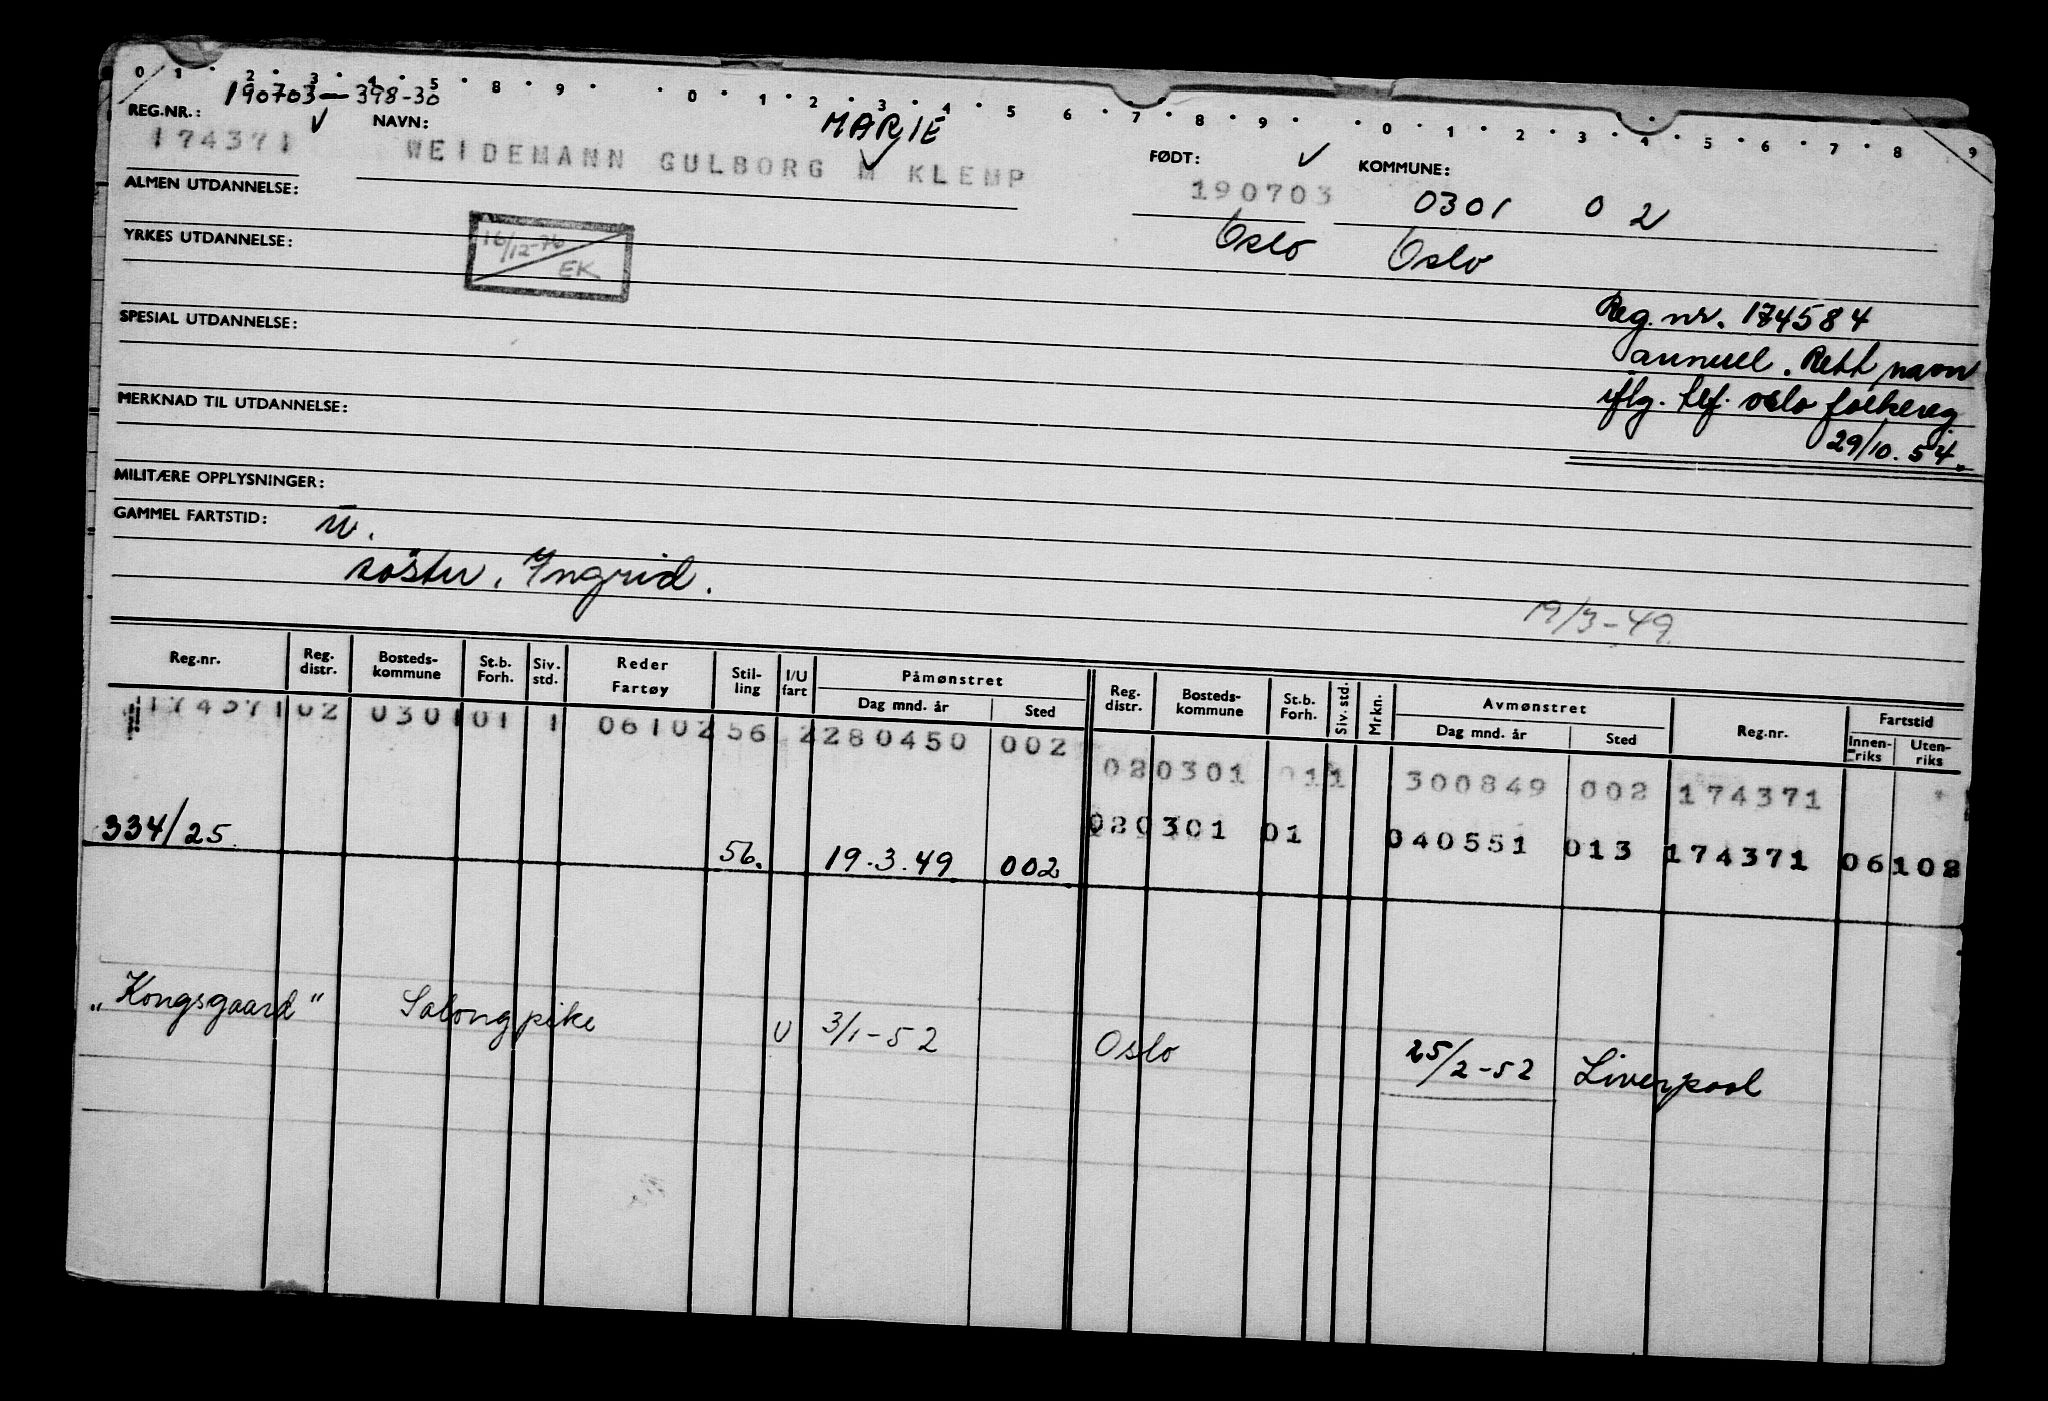 0 1 2 3 4 5 8 9 0 1 2 3 4 5 6 7 8 9 0 1 2 3 4 5 6 7 8 9
190703-398-30
REG.NR.: NAVN: MARIE FØDT: KOMMUNE:
174371 WEIDEMANN GULBORG M KLEMP 190703 0301 02
ALMEN UTDANNELSE:
Oslo Oslo
YRKES UTDANNELSE:
16/12-76
EK
Reg. nr. 174584
SPESIAL UTDANNELSE:
annuel. Rett navn
iflg. tlf. oslo folkereg.
MERKNAD TIL UTDANNELSE:
29/10.54.
MILITÆRE OPPLYSNINGER:
GAMMEL FARTSTID:
söster, Ingrid.
19/3-49
Reg.nr. Reg. distr. Bosteds-kommune St.b. Forh. Siv. std. Reder Fartøy Stil-ling I/U fart Påmønstret Dag mnd. år Sted Reg. distr. Bosteds-kommune St.b. Forh. Siv. std. Mrkn. Avmønstret Dag mnd. år Sted Reg.nr. Fartstid Innen-riks Uten-riks
174371 02 0301 01 1 06102 56 2 280450 002
020301 011 300849 002 174371
334/25 56. 19.3.49 002
020301 01 040551 013 174371 06102
"Kongsgaard" Salongpike U 3/1-52 Oslo 25/2-52 Liverpool